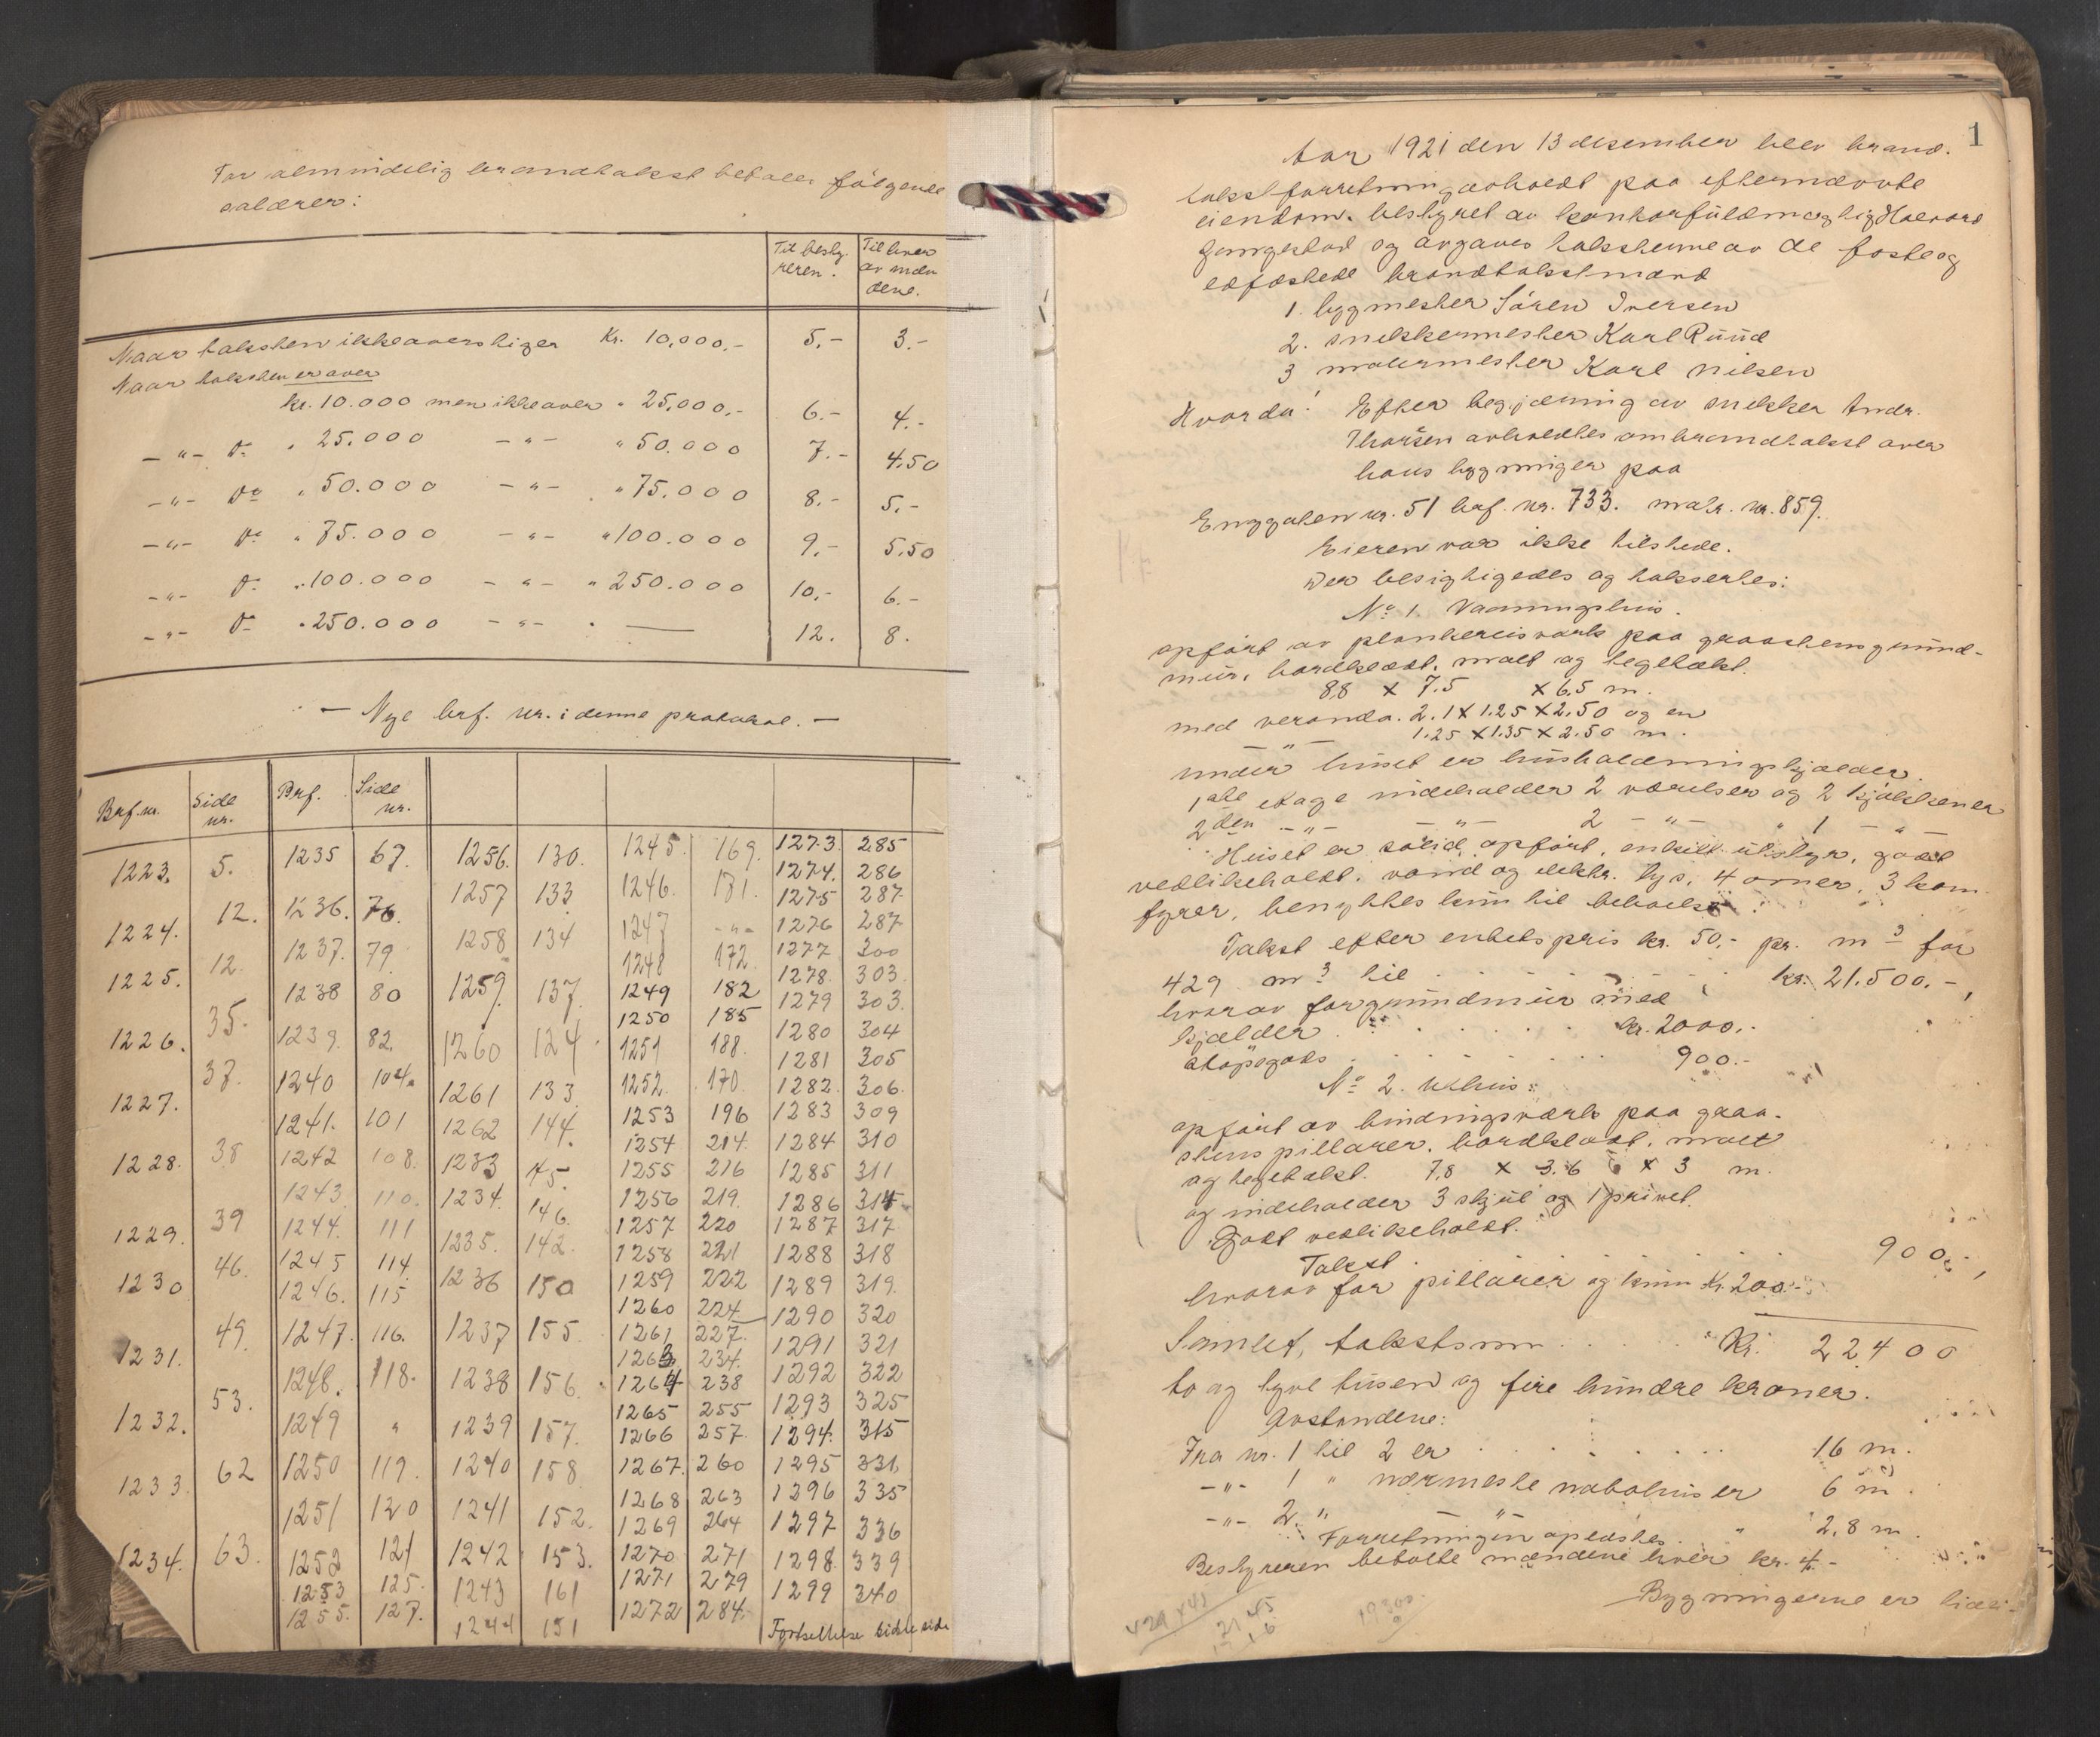 For almindelig brandtakst betales følgende
salærer:
Til besty-
reren.
Til hver
av mæn
dene.
Naar taksten ikke overstiger Kr. 10,000.- 5.- 3.-
Naar taksten er over
kr. 10.000 men ikke over " 25,000.- 6.- 4.-
-"- Do " 25.000 -"- " 50.000 7.- 4.50
-"- Do " 50.000 -"- " 75.000 8.- 5.-
-"- Do " 75.000 -"- " 100.000 9.- 5.50
-"- Do " 100.000 -"- " 250.000 10.- 6.-
-"- Do " 250.000 -"- " — 12. 8.
- Nye brf. nr. i denne protokol. -
Brf. nr. Side nr. Brf. Side nr.
1223. 5.
1224. 12.
1225. 12.
1226. 35.
1227. 37.
1228. 38
1229. 39
1230 46.
1231. 49.
1232. 53.
1233. 62
1234. 63.
1235 67.
1236. 76.
1237. 79.
1238 80
1239. 82.
1240 104.
1241. 101
1242 108.
1243 110.
1244. 111
1245 114
1246. 115
1247. 116.
1248. 118.
1249 "
1250 119.
1251 120
1252 121
1253 125.
1255. 127.
1256. 130.
1257 133
1258 134
1259. 137.
1260 124.
1261 133.
1262 144.
1233 145.
1234. 146.
1235. 142.
1236 150
1237 155.
1238 156.
1239 157.
1240 158.
1241 152.
1242 153.
1243 161
1244 151
1245. 169.
1246. 171.
1247 -"-
1248 172.
1249 182
1250 185
1251 188.
1252. 170.
1253 196
1254 214.
1255 216
1256 219.
1257 220
1258 221
1259 222
1260 224
1261 227.
1263 234.
1264 238
1265 255
1266 257.
1267. 260
1268 263
1269 264
1270 271
1271 279
1272 284.
1273. 285
1274. 286
1275 287.
1276 287
1277 300
1278. 303.
1279 303.
1280 304
1281 305
1282. 306.
1283 309
1284 310
1285 311
1286 314
1287 317
1288 318
1289 319.
1290 320
1291 321
1292 322
1293 325
1294. 315
1295 331
1296 335
1297 336
1298. 339
1299 340
Fortsettelse sidste side
1
Aar 1921 den 13 desember blev brand-
takstforretning avholdt paa efternævnte
eiendom, bestyret av kontorfuldmægtig Halvord
og avgaves taksterne av de faste og
edfæstede brandtakstmænd
1. bygmester Sören Iversen
2. snekkermester Karl Ruud
3 malermester Karl Nilsen
Hvorda: Efter begjæring av snekker Andr.
Thorsen avholdtes ombrandtakst over
hans bygninger paa
Enggaten nr. 51 brf. nr. 733. matr. nr. 859.
Eieren var ikke tilstede.
Der besigtigedes og taksertes:
No 1. Vaaningshus.
opført av plankereisverk paa graastensgrund-
mur, bordklædt, malt og teglhækt.
8,8 x 7.5 x 6,5 m.
med veranda. 2.1 x 1.25 x 2.50 og en
-"- 1.25 x 1.35 x 2.50 m.
under huset er husholdningskjælder.
1ste etage indeholder 2 værelser og 2 kjøkkener
2den -"- -"- 2 -"- " 1 -"-
Huset er solid opført, enkelt utstyr, godt
vedlikeholdt, vand og elektr. lys, 4 ovner, 3 kom-
fyrer, benyttes kun til beboelse.
Takst efter enhetspris kr. 50.- pr. m3 for
429 m3 til . . . . kr. 21.500.-,
hvorav for grundmur med
kjælder . . . . kr. 2000.-
støpegods . . . . 900.-
No 2. Uthus:
opført av bindingsværk paa graa-
stens pillarer, bordklædt, malt
og teglhækt. 7,8 x 3.6 x 3 m.
og indeholder 3 skjul og 1 privet.
Godt vedlikeholdt.
Takst . . . . 900.-,
hvorav for pillarer og Kr. 200.-
Samlet takstsum . . . . Kr. 22400
to og tyve tusen og fire hundre kroner.
Avstandene:
Fra nr. 1 til 2 er . . . . 16 m.
-"- 1 " nærmeste nabohus er 6 m.
-"- 2 " -"- " 2,8 m.
Forretningen oplæstes.
Bestyreren betalte mændene hver kr. 4.-
Bygningerne er tidli-